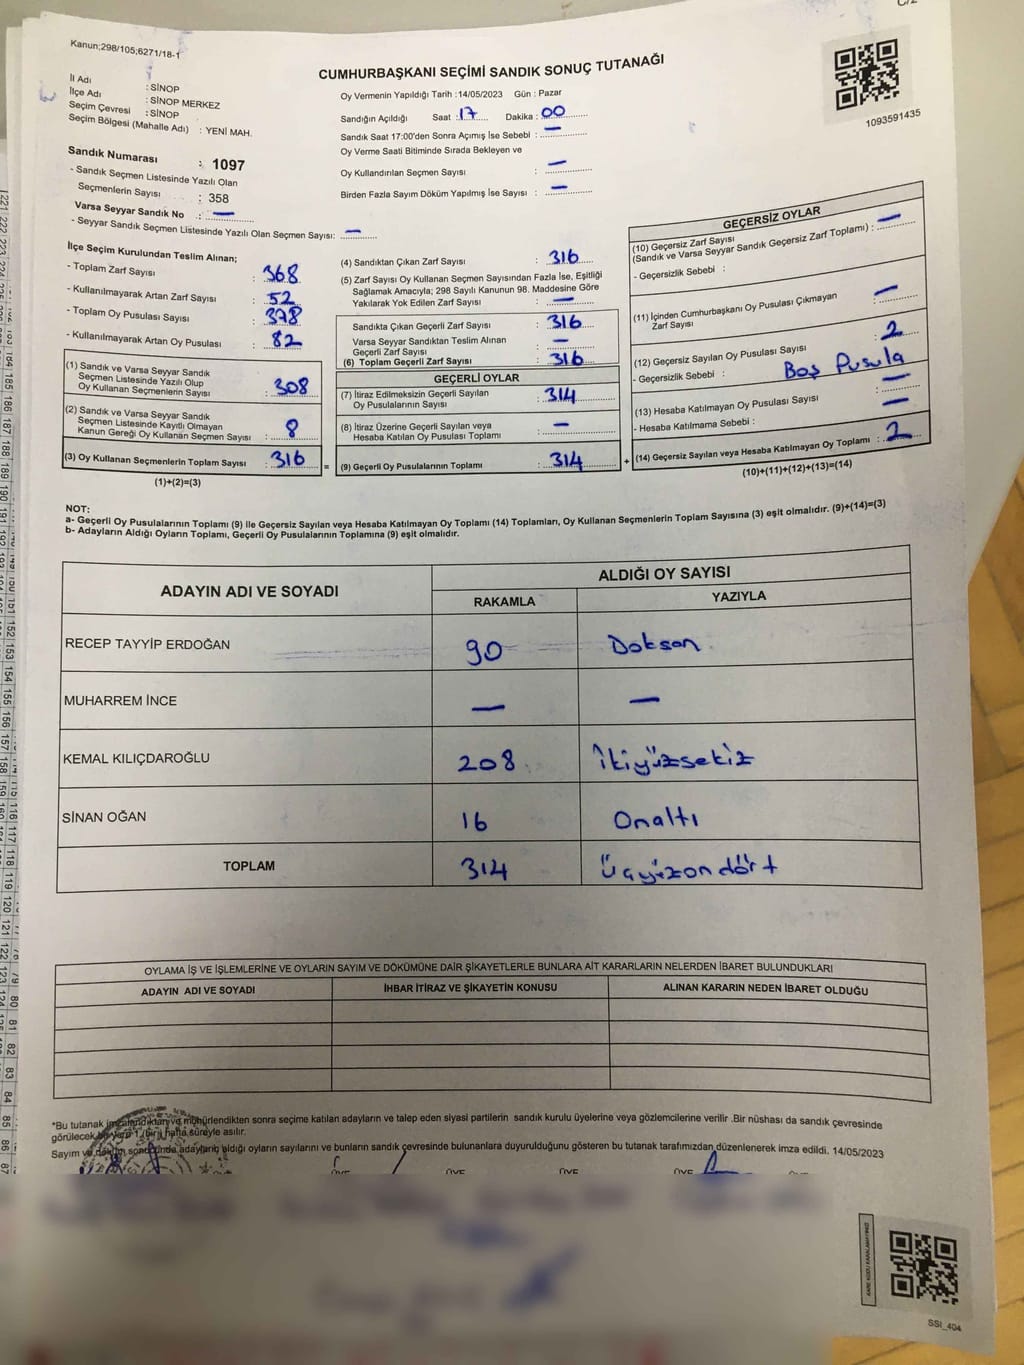 Kanun;298/105;6271/18-1
CUMHURBAŞKANI SEÇİMİ SANDIK SONUÇ TUTANAĞI
1093591435
İl Adı : SİNOP
İlçe Adı : SİNOP MERKEZ
Seçim Çevresi : SİNOP
Seçim Bölgesi (Mahalle Adı) : YENİ MAH.
Oy Vermenin Yapıldığı Tarih :14/05/2023 Gün : Pazar
Sandığın Açıldığı Saat : 17 Dakika : 00
Sandık Saat 17:00'den Sonra Açımış İse Sebebi : —
Oy Verme Saati Bitiminde Sırada Bekleyen ve
Oy Kullandırılan Seçmen Sayısı : —
Birden Fazla Sayım Döküm Yapılmış İse Sayısı : —
Sandık Numarası : 1097
- Sandık Seçmen Listesinde Yazılı Olan
Seçmenlerin Sayısı : 358
Varsa Seyyar Sandık No : —
- Seyyar Sandık Seçmen Listesinde Yazılı Olan Seçmen Sayısı: —
İlçe Seçim Kurulundan Teslim Alınan;
- Toplam Zarf Sayısı : 368
- Kullanılmayarak Artan Zarf Sayısı : 52
- Toplam Oy Pusulası Sayısı : 378
- Kullanılmayarak Artan Oy Pusulası : 82
(1) Sandık ve Varsa Seyyar Sandık
Seçmen Listesinde Yazılı Olup
Oy Kullanan Seçmenlerin Sayısı : 308
(2) Sandık ve Varsa Seyyar Sandık
Seçmen Listesinde Kayıtlı Olmayan
Kanun Gereği Oy Kullanan Seçmen Sayısı : 8
(3) Oy Kullanan Seçmenlerin Toplam Sayısı : 316
(1)+(2)=(3)
=
(4) Sandıktan Çıkan Zarf Sayısı : 316
(5) Zarf Sayısı Oy Kullanan Seçmen Sayısından Fazla İse, Eşitliği
Sağlamak Amacıyla; 298 Sayılı Kanunun 98. Maddesine Göre
Yakılarak Yok Edilen Zarf Sayısı : —
Sandıkta Çıkan Geçerli Zarf Sayısı : 316
Varsa Seyyar Sandıktan Teslim Alınan
Geçerli Zarf Sayısı : —
(6) Toplam Geçerli Zarf Sayısı : 316
GEÇERLİ OYLAR
(7) İtiraz Edilmeksizin Geçerli Sayılan
Oy Pusulalarının Sayısı : 314
(8) İtiraz Üzerine Geçerli Sayılan veya
Hesaba Katılan Oy Pusulası Toplamı : —
(9) Geçerli Oy Pusulalarının Toplamı : 314
+
GEÇERSİZ OYLAR
(10) Geçersiz Zarf Sayısı
(Sandık ve Varsa Seyyar Sandık Geçersiz Zarf Toplamı) : —
- Geçersizlik Sebebi :
(11) İçinden Cumhurbaşkanı Oy Pusulası Çıkmayan
Zarf Sayısı : —
(12) Geçersiz Sayılan Oy Pusulası Sayısı : 2
- Geçersizlik Sebebi : Boş Pusula
(13) Hesaba Katılmayan Oy Pusulası Sayısı : —
- Hesaba Katılmama Sebebi : —
(14) Geçersiz Sayılan veya Hesaba Katılmayan Oy Toplamı : 2
(10)+(11)+(12)+(13)=(14)
NOT:
a- Geçerli Oy Pusulalarının Toplamı (9) ile Geçersiz Sayılan veya Hesaba Katılmayan Oy Toplamı (14) Toplamları, Oy Kullanan Seçmenlerin Toplam Sayısına (3) eşit olmalıdır. (9)+(14)=(3)
b- Adayların Aldığı Oyların Toplamı, Geçerli Oy Pusulalarının Toplamına (9) eşit olmalıdır.
ADAYIN ADI VE SOYADI ALDIĞI OY SAYISI
RAKAMLA YAZIYLA
RECEP TAYYİP ERDOĞAN 90 Doksan
MUHARREM İNCE — —
KEMAL KILIÇDAROĞLU 208 İkiyüzsekiz
SİNAN OĞAN 16 Onaltı
TOPLAM 314 Üçyüzondört
OYLAMA İŞ VE İŞLEMLERİNE VE OYLARIN SAYIM VE DÖKÜMÜNE DAİR ŞİKAYETLERLE BUNLARA AİT KARARLARIN NELERDEN İBARET BULUNDUKLARI
ADAYIN ADI VE SOYADI İHBAR İTİRAZ VE ŞİKAYETİN KONUSU ALINAN KARARIN NEDEN İBARET OLDUĞU
*Bu tutanak imzalandıktan ve mühürlendikten sonra seçime katılan adayların ve talep eden siyasi partilerin sandık kurulu üyelerine veya gözlemcilerine verilir .Bir nüshası da sandık çevresinde
görülecek bir yere 1 (bir) hafta süreyle asılır.
Sayım ve döküm sonucunda adayların aldığı oyların sayılarını ve bunların sandık çevresinde bulunanlara duyurulduğunu gösteren bu tutanak tarafımızdan düzenlenerek imza edildi. 14/05/2023
SSI_404